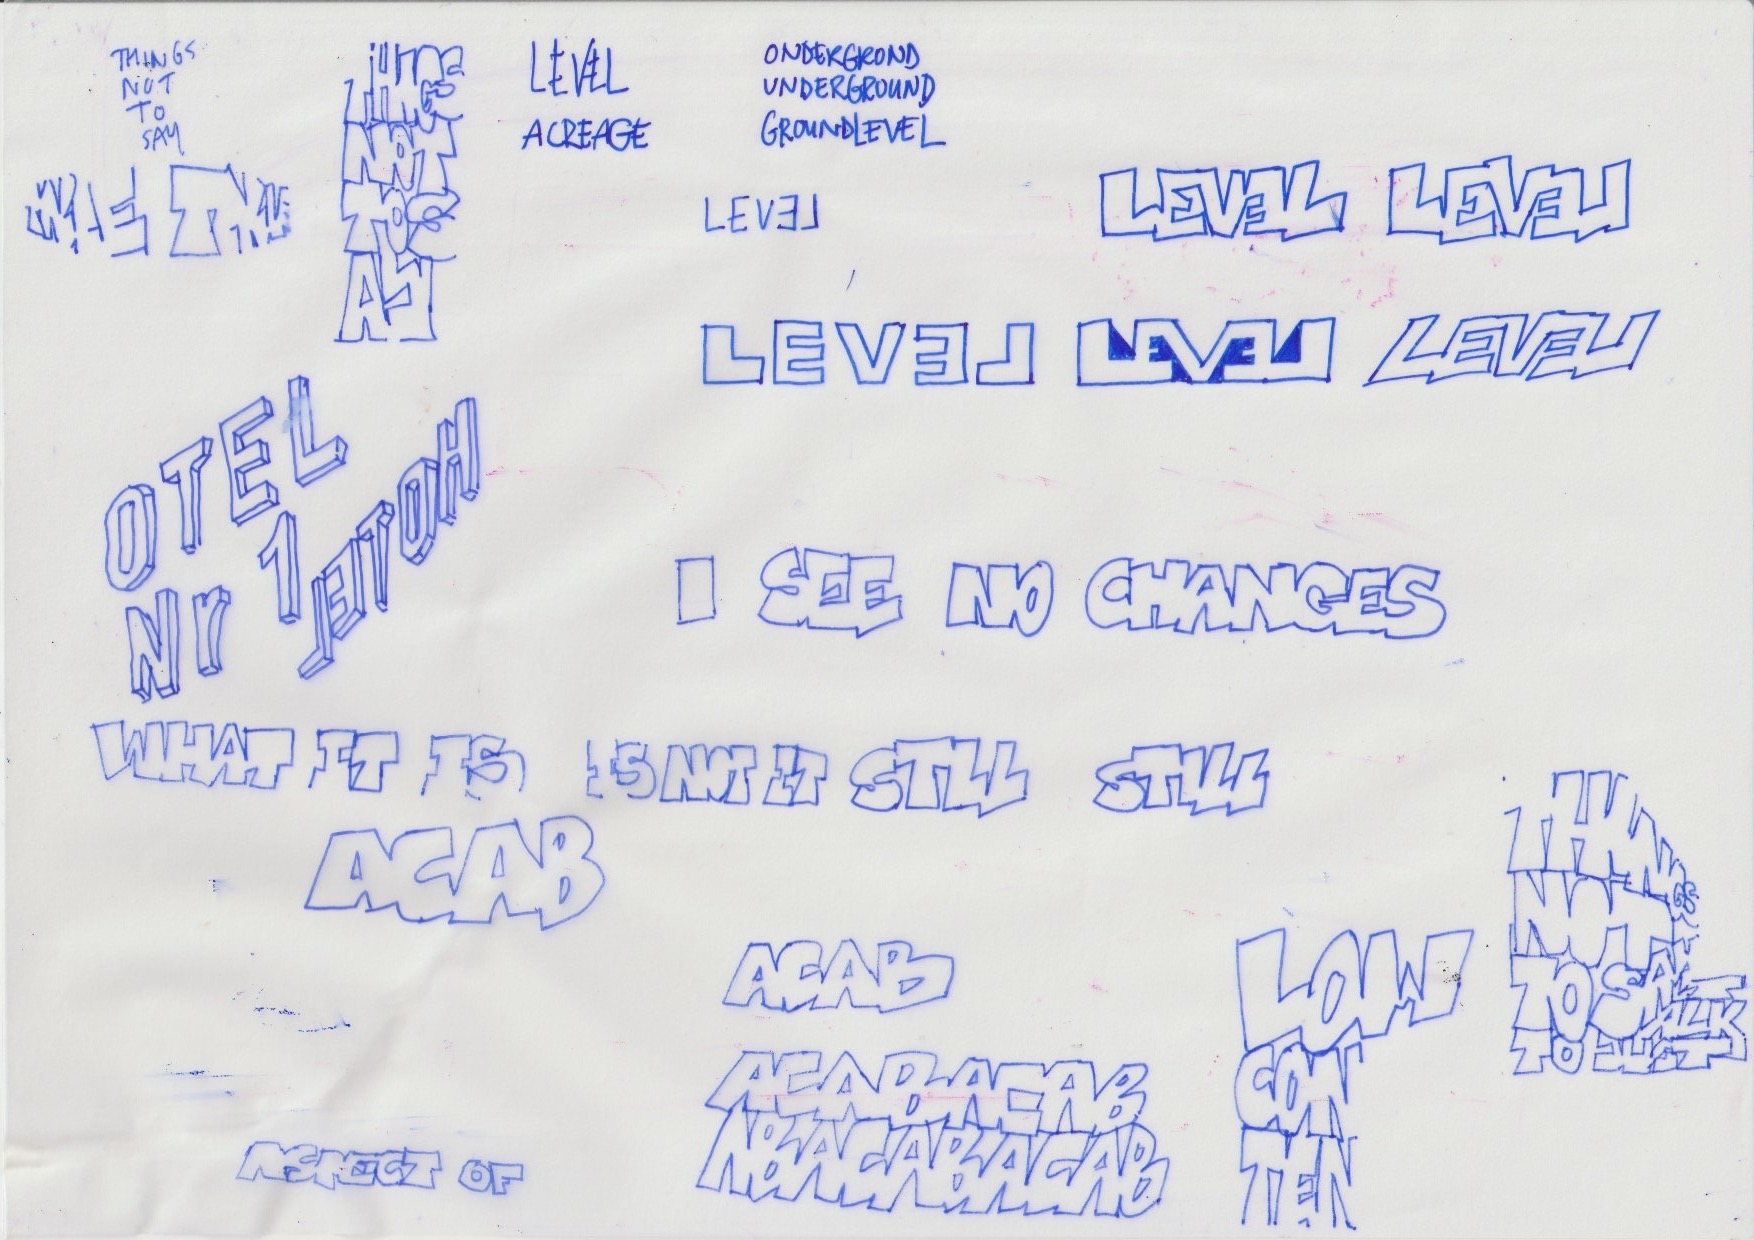 THINGS
NOT
TO
SAY
THINGS
NOT
TO S
AY
LEVEL
ACREAGE
ONDERGROND
UNDERGROUND
GROUNDLEVEL
LEVEL
LEVEL LEVEL
LEVEL LEVEL LEVEL
OTEL
Nr 1
HOTEL
I SEE NO CHANGES
WHAT IT IS IS NOT IT STILL STILL
ACAB
ACAB
ACABACAB
ACABACAB
LOW
CON
TEN
THINGS
NOT
TO SAY
TO JUST
TALK
ASPECT OF